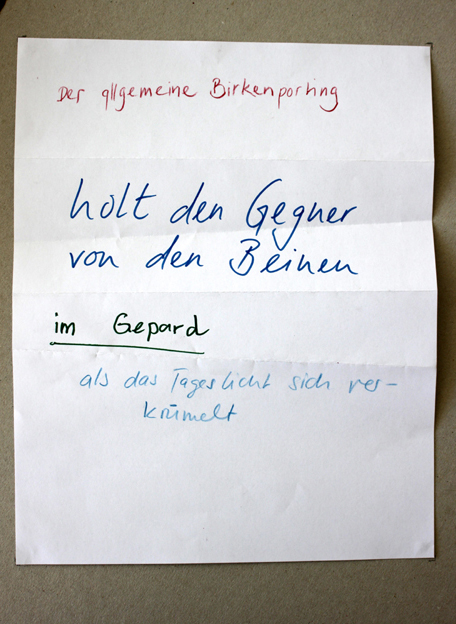 Der allgemeine Birkenporling
holt den Gegner
von den Beinen
im Gepard
als das Tageslicht sich ver-
krümelt